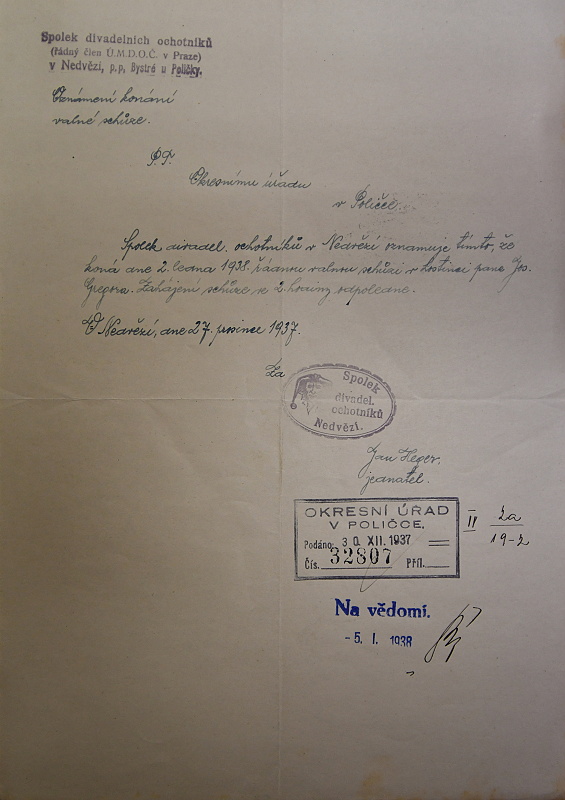 Spolek divadelních ochotníků
(řádný člen Ú.M.D.O.Č. v Praze)
v Nedvězí, p.p. Bystré u Poličky.
Oznámení konání
valné schůze.
P.T.
Okresnímu úřadu
v Poličce.
Spolek divadel. ochotníků v Nedvězí oznamuje tímto, že
koná dne 2. ledna 1938. řádnou valnou schůzi v hostinci pana Jos.
Gregora. Zahájení schůze ve 2. hodiny odpoledne.
V Nedvězí, dne 27. prosince 1937.
Za
Spolek
divadel.
ochotníků
Nedvězí.
Jan Heger.
jednatel.
OKRESNÍ ÚŘAD
V POLIČCE.
Podáno: 30. XII. 1937
Čís. 32807 Příl.
II 2a
19-2
Na vědomí.
- 5. I. 1938